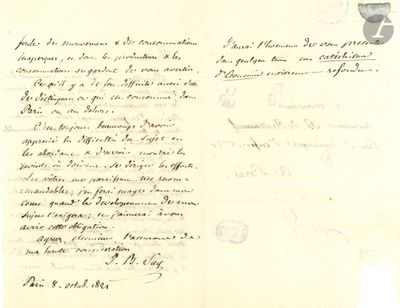 foule des mouvemens & des consommations
inaperçus, et dont les producteurs & les
consommateurs se gardent de vous avertir.
Ce qu'il y a de fort difficile aussi c'est
de distinguer ce qui est consommé dans
Paris ou au dehors.
C'est toujours beaucoup d'avoir
apprécié les difficultés du sujet en
les abordant & d'avoir montré les
points où doivent se diriger les efforts.
Les vôtres me paraissent très recom-
mandables; j'en ferai usage dans mon
cours quand le développement de mon
sujet l'exigera; et j'aimerai à vous
avoir cette obligation.
agréez, Monsieur l'assurance de
ma haute considération
J. B. Say
Paris 8. octob. 1821
J'aurai l'honneur de vous présenter
dans quelque tems un catéchisme
d'Économie entièrement refondu.